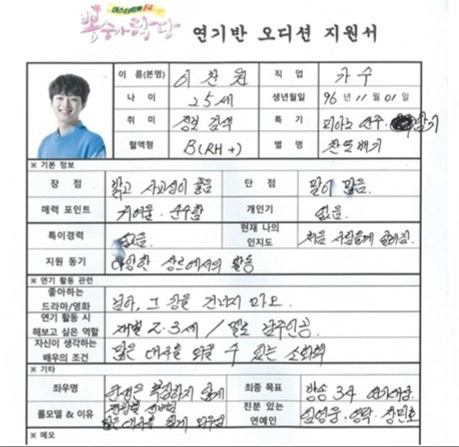 미스터트롯 F4
뽕숭아학당 연기반 오디션 지원서
이 름(본명) 이찬원 직 업 가수
나 이 25세 생년월일 96년 11월 01일
취 미 정보 검색 특 기 피아노 연주
혈액형 B(RH+) 별 명 찬또배기
※ 기본 정보
장 점 밝고 사교성이 좋음 단 점 말이 많음.
매력 포인트 귀여움·순수함 개인기 없음.
특이경력 없음. 현재 나의 인지도
지원 동기 다양한 장르에서의 활동
※ 연기 활동 관련
좋아하는 드라마/영화 님아, 그 강을 건너지 마오.
연기 활동 시 해보고 싶은 역할 재벌 2·3세 / 멜로 남주인공
자신이 생각하는 배우의 조건 많은 대사를 외울 수 있는 소화력
※ 기타
좌우명 최종 목표 방송 3사 연기대상
롤모델 & 이유 친분 있는 연예인 임영웅·영탁·장민호
※ 메모